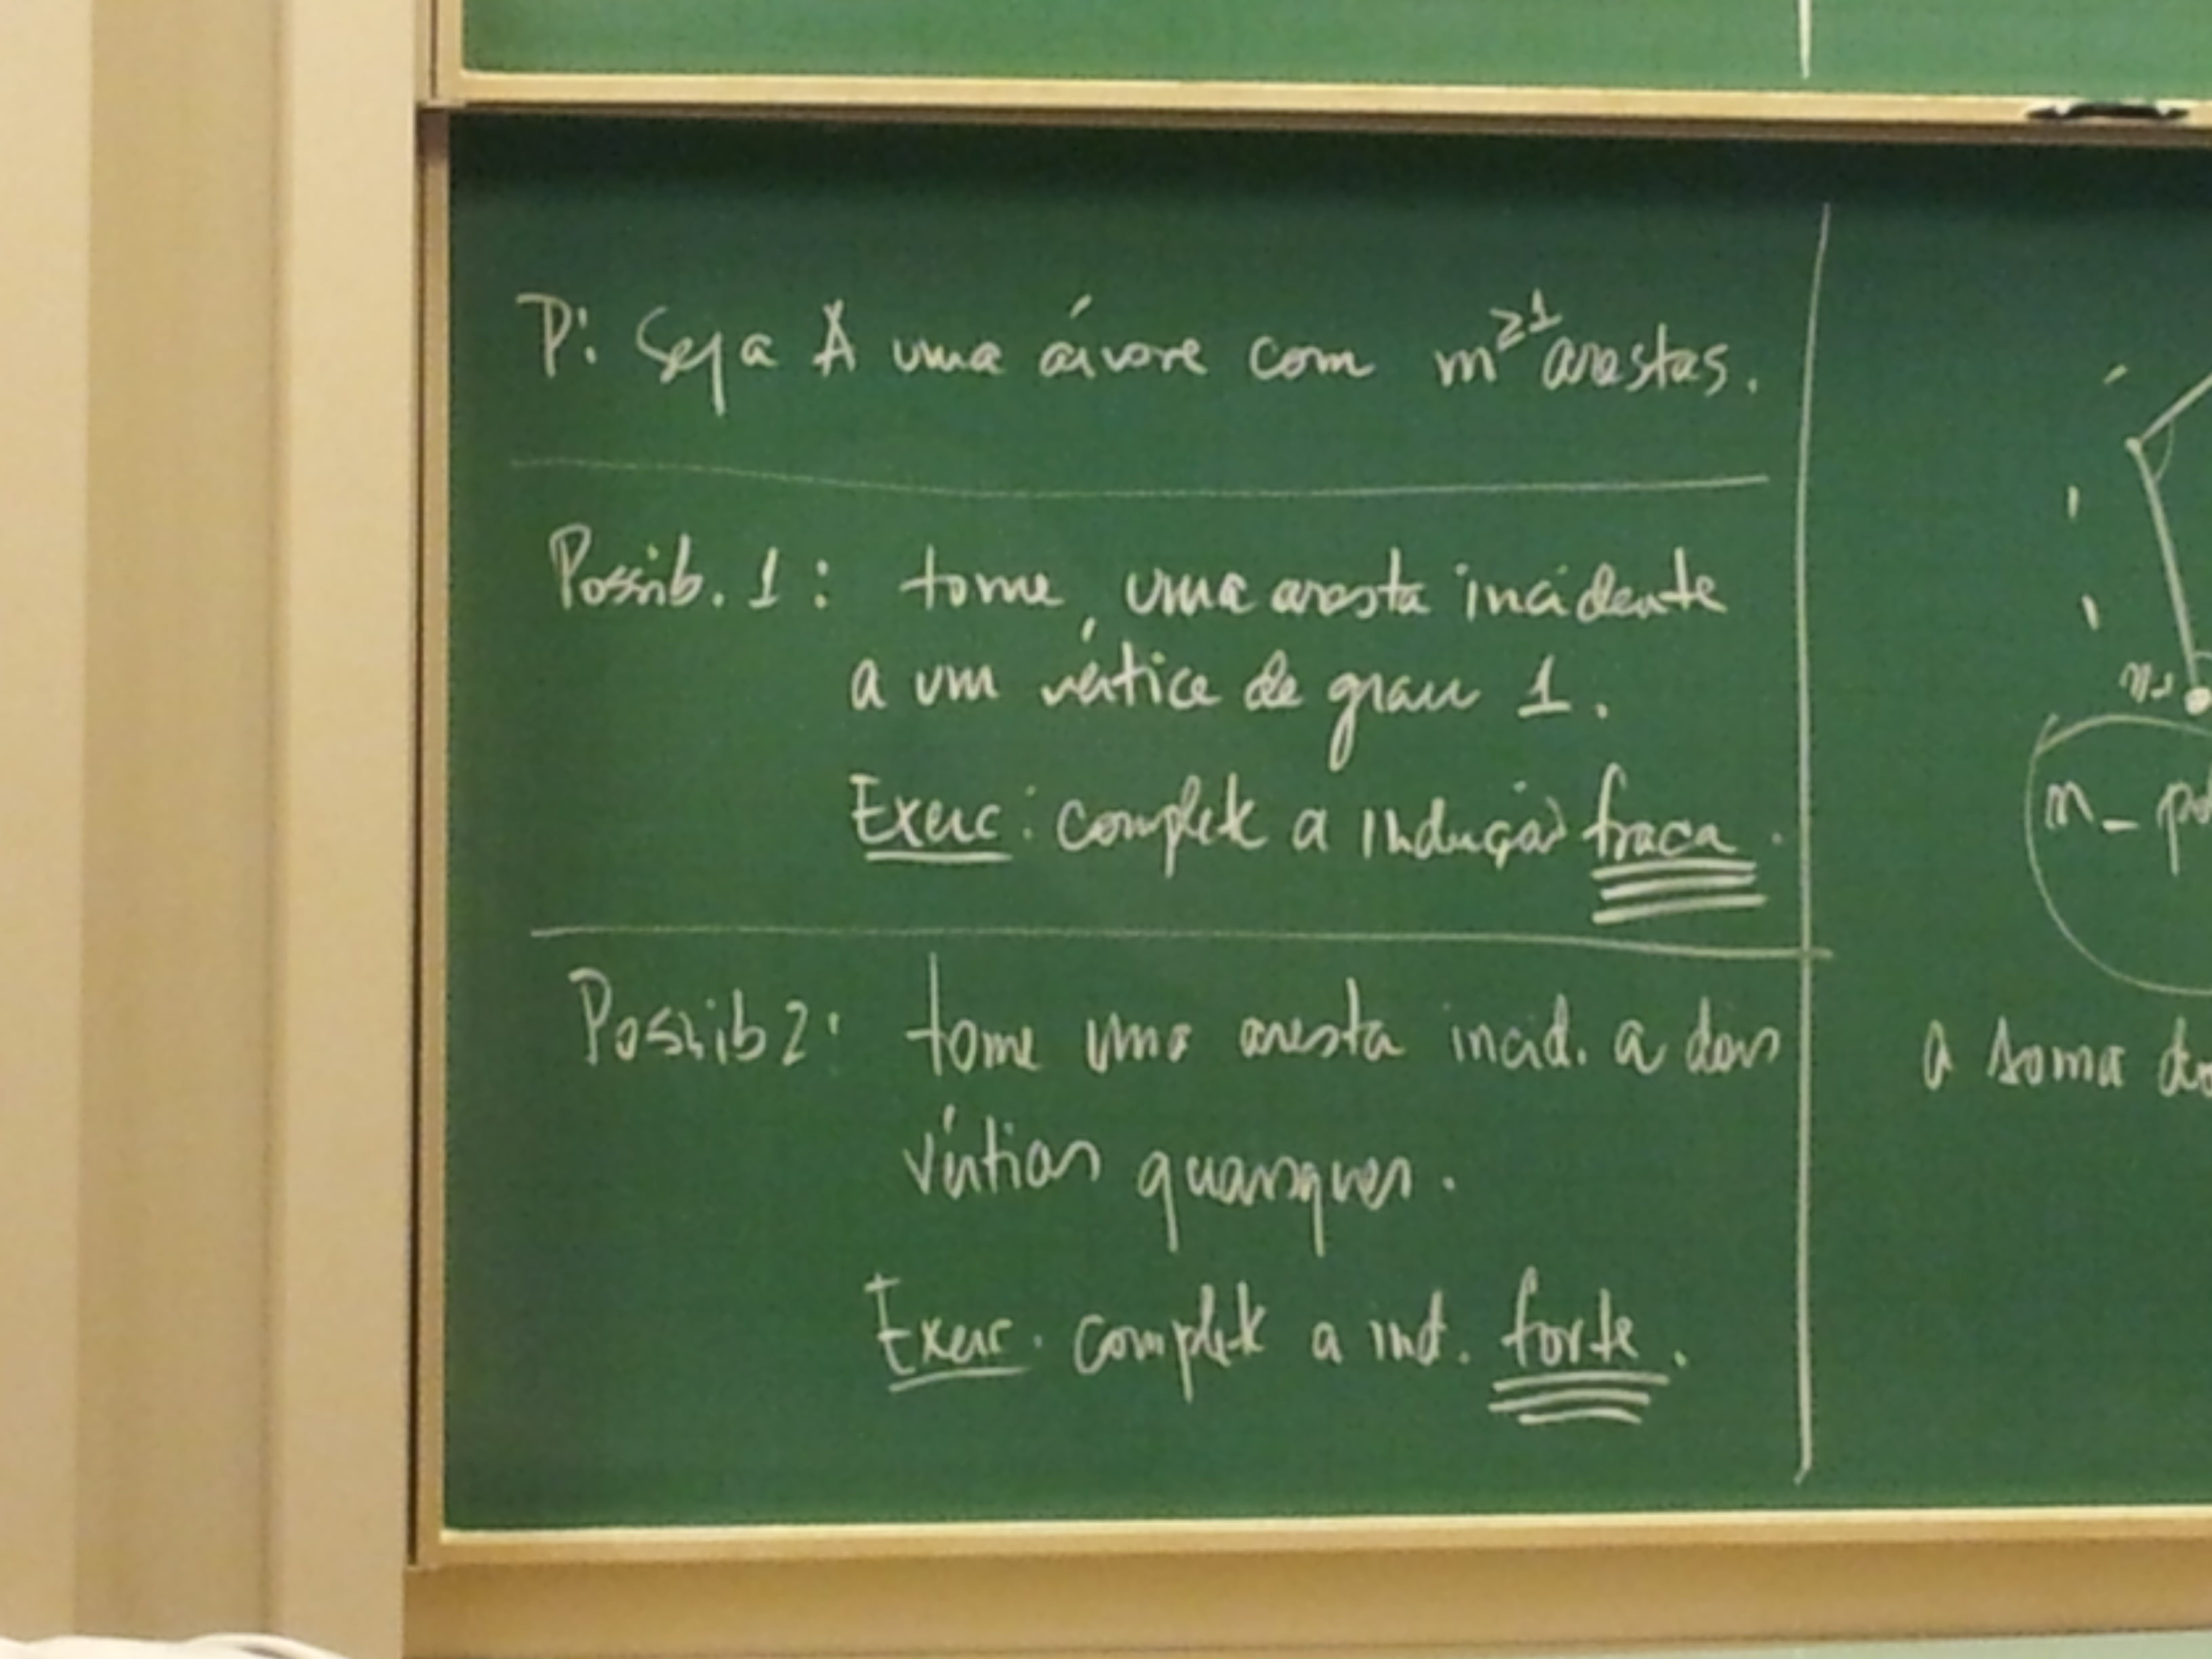 P: Seja A uma árvore com m≥1 arestas.
Possib. 1: tome uma aresta incidente
a um vértice de grau 1.
Exerc: complete a indução fraca.
Possib 2: tome uma aresta incid. a dois
vértices quaisquer.
Exerc. complete a ind. forte.
n-1
n-
a soma